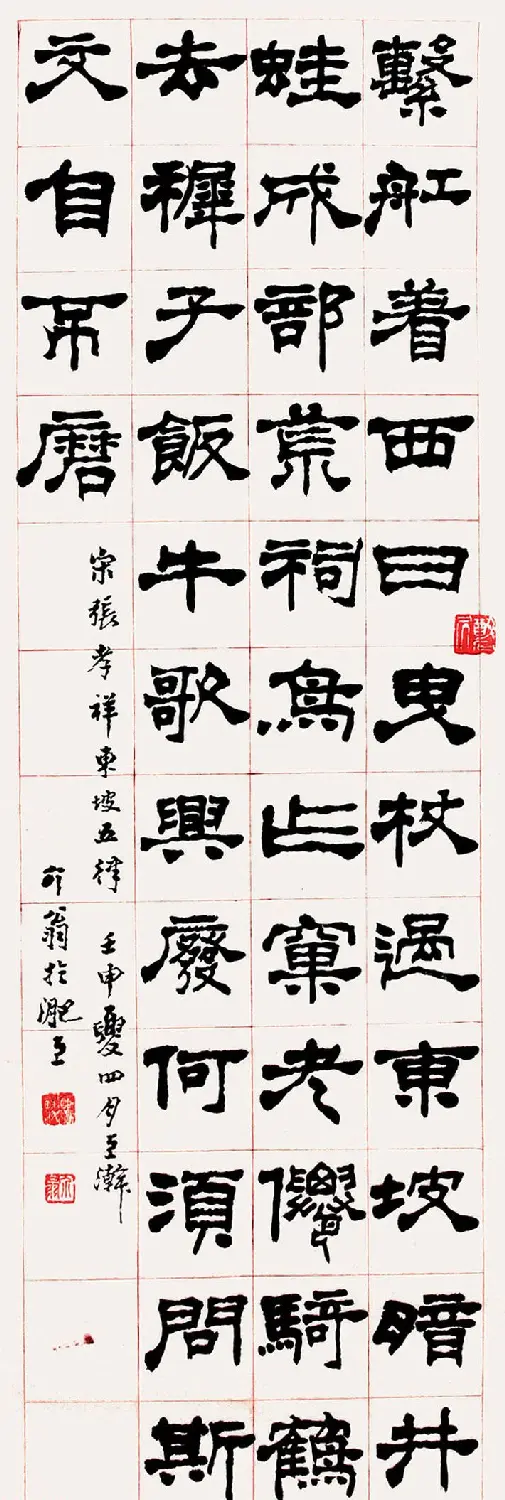 繫舡着西日曳杖過東坡暗井
蛙成部荒祠鳥占窠老僊騎鶴
去穉子飯牛歌興廢何須問斯
文自不磨
宋張孝祥東坡五律 壬申夏四月王瀚
翁於淝上